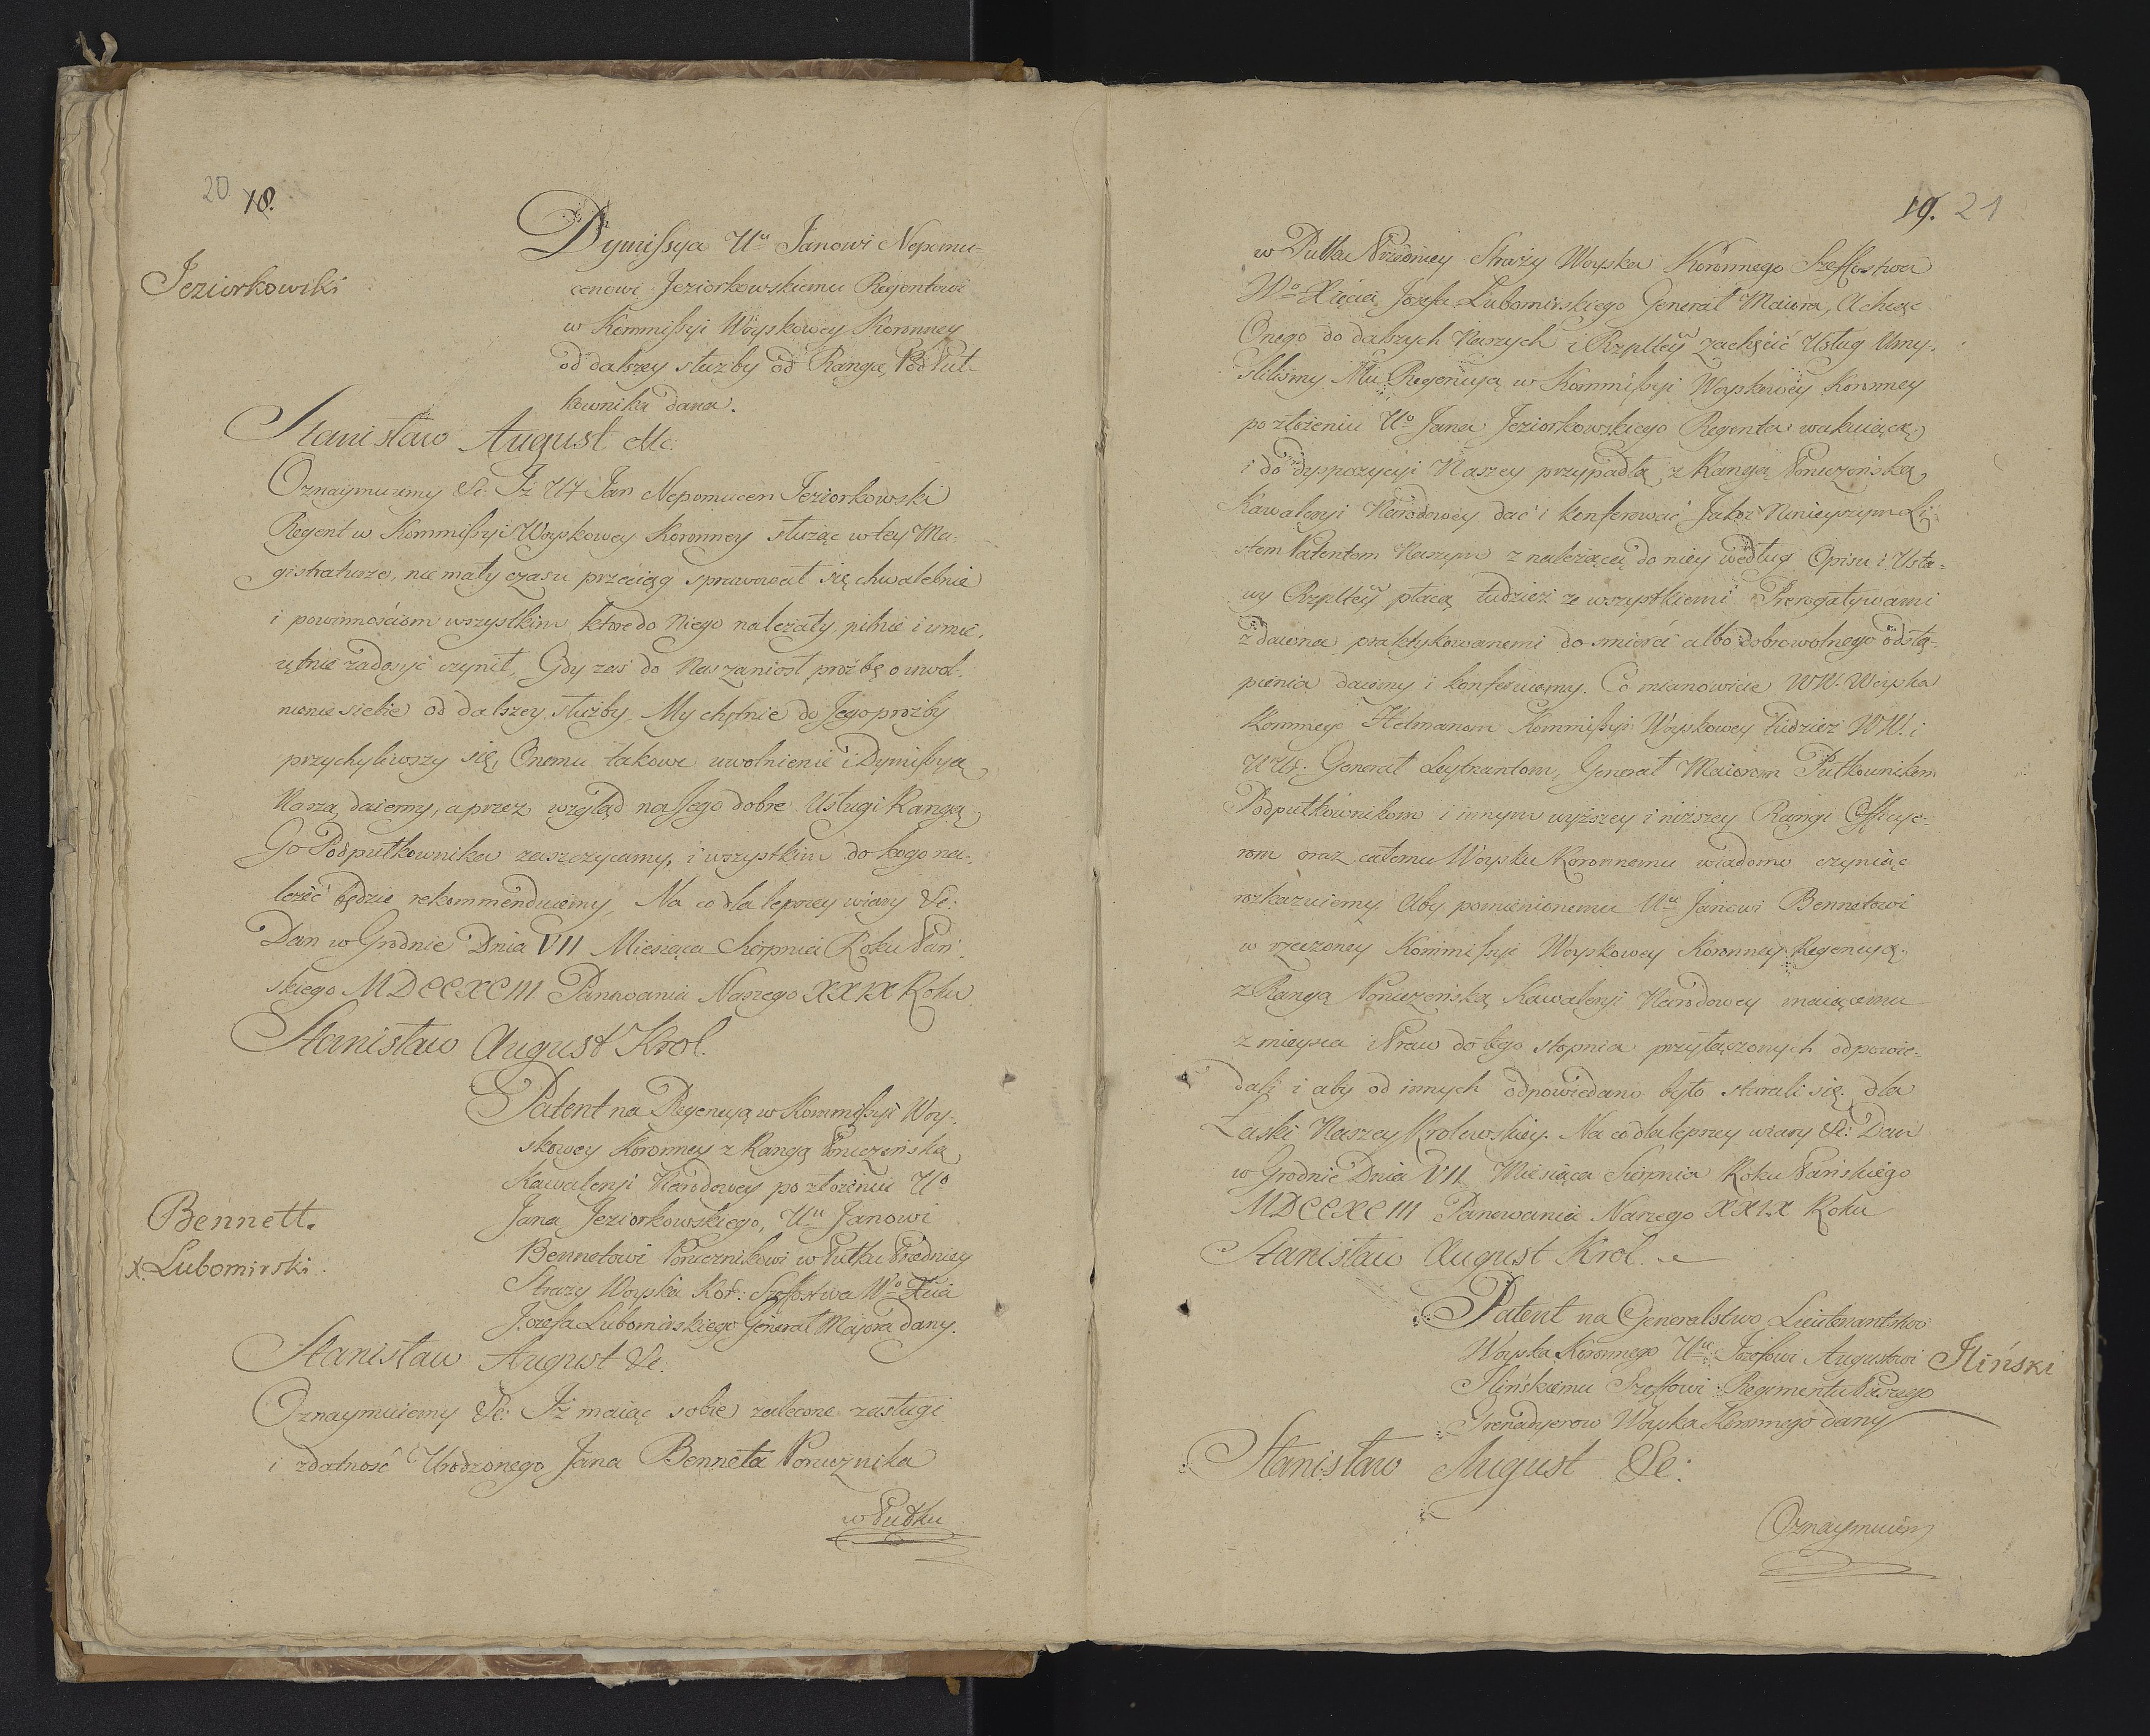 20 18.
Dymissya Uu Janowi Nepomu=
Jeziorkowski
cenowi Jeziorkowskiemu Regentowi
w Kommissyi Woyskowey Koronney
od dalszey służby od Rangą PodPuł=
kownika dana.
Stanisław August etc:
Oznaymuiemy &c: Iż Ur Jan Nepomucen Jeziorkowski
Regent w Kommissyi Woyskowey Koronney służąc w tey Ma=
gistraturze, nie mały czasu przeciąg sprawował się chwalebnie
i powinnościom wszystkim ktore do Niego należały, pilnie i umie=
iętnie zadosyć czynił, Gdy zaś do Nas zaniosł prożbę o uwol=
nienie siebie od dalszey służby My chętnie do Jego prożby
przychyliwszy się, Onemu takowe uwolnienie i Dymissyą
Naszą daiemy, a przez wzgląd na Jego dobre Usługi Rangą
Go Podpułkownika zaszczycamy, i wszystkim do kogo na=
leżeć będzie rekommenduiemy, Na co dla lepszey wiary &c:
Dan w Grodnie Dnia VII Miesiąca Sierpnia Roku Pań=
skiego MDCCXCIII. Panowania Naszego XXIX Roku
Stanisław August Krol.
Patent na Regencyą w Kommissyi Woy=
skowey Koronney z Rangą Poruczeńską
Kawaleryi Narodowey po złożeniu Uo
Bennett.
Jana Jeziorkowskiego, Uu Janowi
Bennetowi Porucznikowi w Pułku Przedniey
X. Lubomirski.
Straży Woyska Kor: Szeffostwa Wo Xcia
Jozefa Lubomirskiego Generał Majora dany.
Stanisław August &c:
Oznaymuiemy &c: Iż maiąc sobie zalecone zasługi
i zdatność Urodzonego Jana Benneta Porucznika
w Pułku
19. 21
w Pułku Przedniey Straży Woyska Koronnego Szeffostwa
Wo Xięcia Jozefa Lubomirskiego Generał Maiora, A chcąc
Onego do dalszych Naszych i Rzpltey zachęcić Usług Umy=
śliliśmy Mu Regencyą w Kommissyi Woyskowey Koronney
po złożeniu Uo Jana Jeziorkowskiego Regenta wakuiącą
i do dyspozycyi Naszey przypadłą z Rangą Poruczeńską
Kawaleryi Narodowey dać i konferować Jakoż Ninieyszym Li
stem Patentem Naszym z należącą do niey według Opisu i Usta=
wy Rzpltey płacą tudzież ze wszystkiemi Prerogatywami
z dawna praktykowanemi do smierci albo dobrowolnego odstą=
pienia daiemy i konferuiemy. Co mianowicie WW. Woyska
Koronnego Hetmanom Kommissyi Woyskowey tudzież WW. i
UUr. Generał Leytnantom, Generał Maiorom Pułkownikom
Podpułkownikom i innym wyższey i niższey Rangi Officye=
rom oraz całemu Woysku Koronnemu wiadomo czyniąc
rozkazuiemy Aby pomienionemu Uu Janowi Bennetowi
w rzeczoney Kommissyi Woyskowey Koronney Regencyą
z Rangą Poruczeńską Kawaleryi Narodowey maiącemu
z mieysca i Praw do tego stopnia przyłączonych odpowie=
dali i aby od innych odpowiedano było starali się, dla
Łaski Naszey Krolewskiey. Na co dla lepszey wiary &c: Dan
w Grodnie Dnia VII Miesiąca Sierpnia Roku Pańskiego
MDCCXCIII Panowania Naszego XXIX Roku
Stanisław August Krol.
Patent na Generalstwo Lieutenantstwo
Woyska Koronnego Uu Jozefowi Augustowi Iliński
Ilińskiemu Szeffowi Regimentu Pieszego
Grenadyerow Woyska Koronnego dany
Stanisław August &c:
Oznaymuiem